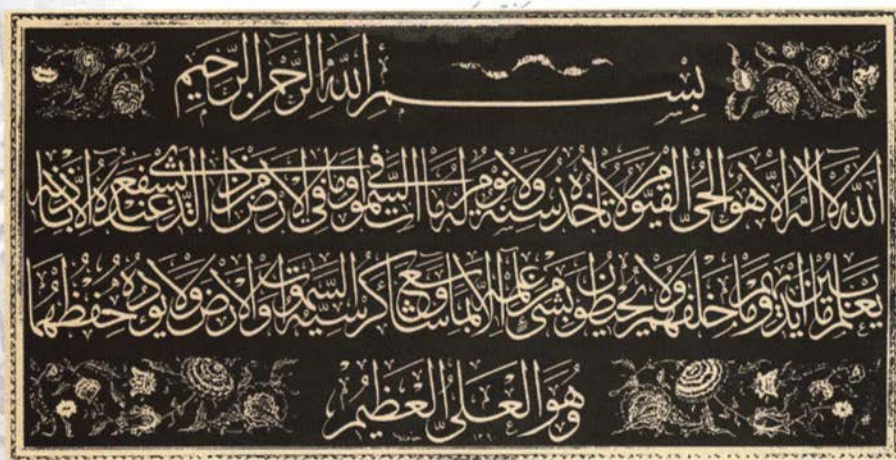 بِسْمِ اللَّهِ الرَّحْمٰنِ الرَّحِيمِ
اللَّهُ لَا إِلٰهَ إِلَّا هُوَ الْحَيُّ الْقَيُّومُ لَا تَأْخُذُهُ سِنَةٌ وَلَا نَوْمٌ لَهُ مَا فِي السَّمٰوَاتِ وَمَا فِي الْأَرْضِ مَنْ ذَا الَّذِي يَشْفَعُ عِنْدَهُ إِلَّا بِإِذْنِهِ
يَعْلَمُ مَا بَيْنَ أَيْدِيهِمْ وَمَا خَلْفَهُمْ وَلَا يُحِيطُونَ بِشَيْءٍ مِنْ عِلْمِهِ إِلَّا بِمَا شَاءَ وَسِعَ كُرْسِيُّهُ السَّمٰوَاتِ وَالْأَرْضَ وَلَا يَئُودُهُ حِفْظُهُمَا
وَهُوَ الْعَلِيُّ الْعَظِيمُ